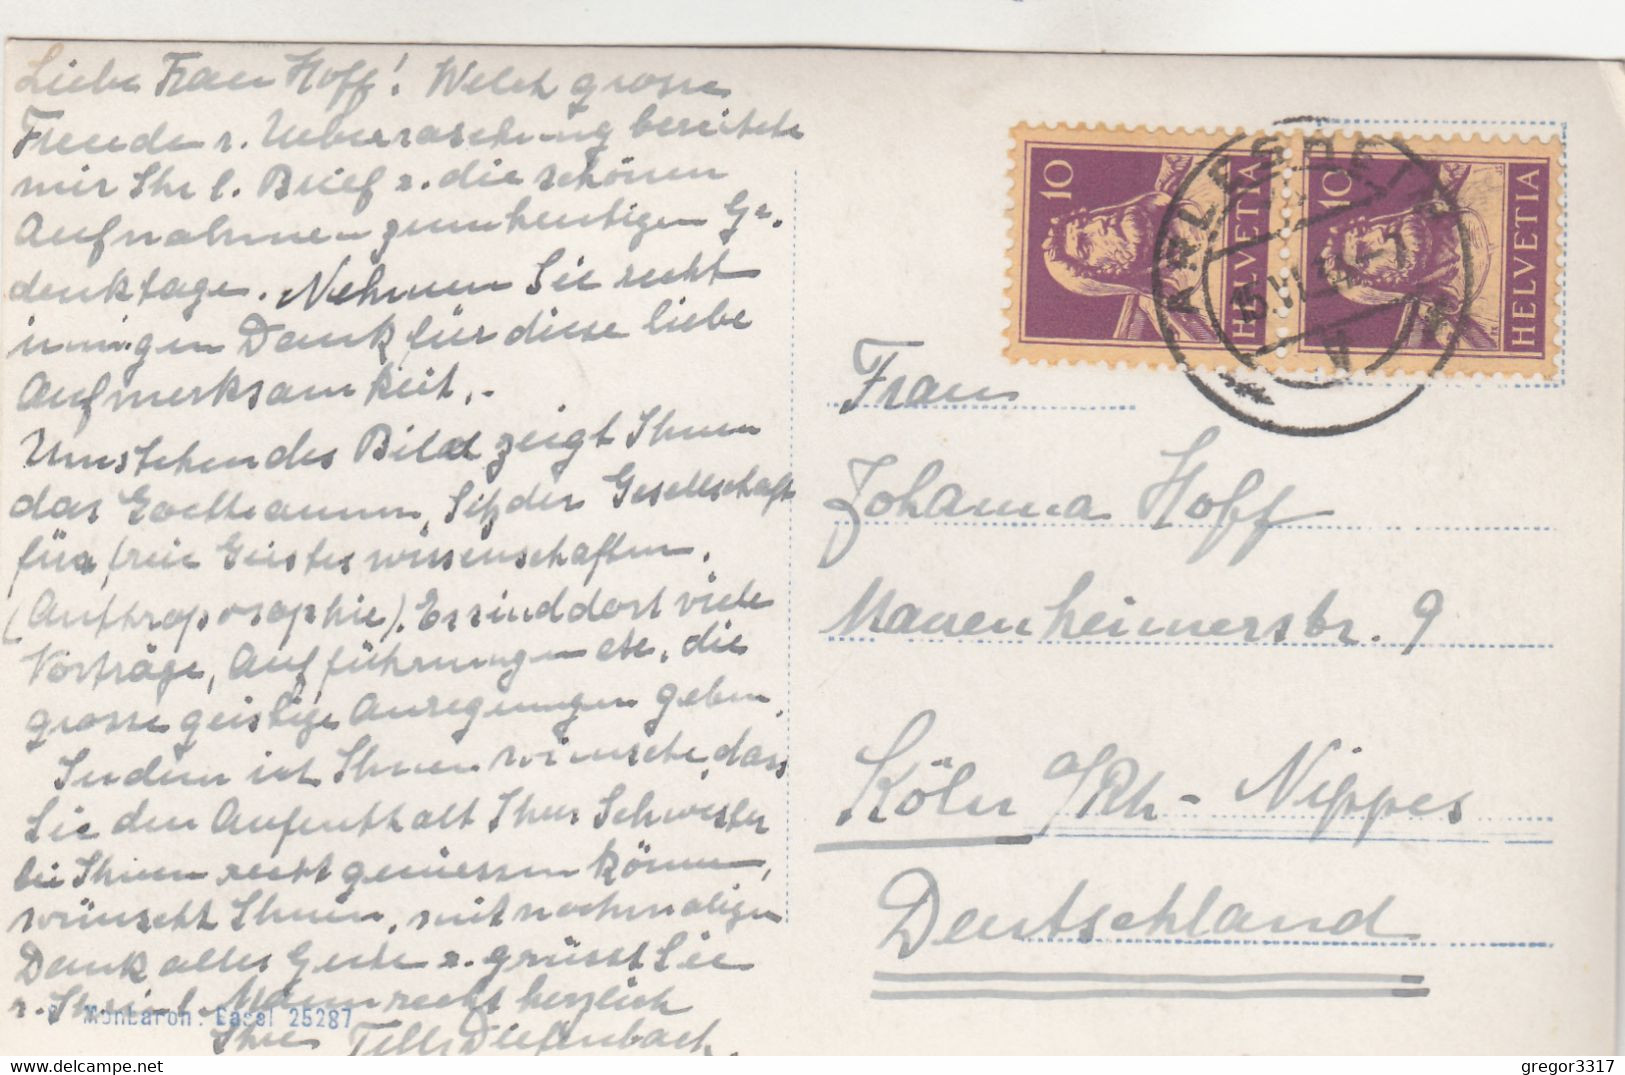 Liebe Frau Hoff! Welch grosse
Freude u. Ueberraschung bereitete
mir Ihr l. Brief u. die schönen
Aufnahmen zum heutigen Ge-
denktage. Nehmen Sie recht
innigen Dank für diese liebe
Aufmerksamkeit.-
Umstehendes Bild zeigt Ihnen
das Goetheanum, Sitz der Gesellschaft
für freie Geisteswissenschaften.
(Anthroposophie). Es sind dort viele
Vorträge, Aufführungen etc. die
grosse geistige Anregungen geben.
Indem ich Ihnen wünsche, dass
Sie den Aufenthalt Ihrer Schwester
bei Ihnen recht geniessen können,
wünscht Ihnen, mit nochmaligen
Dank alles Gute u. grüsst Sie
u. Ihren l. Mann recht herzlich
Ihre Tilly Diefenbach.
Montaron. Basel 25287
10
HELVETIA
10
HELVETIA
ARLESHEIM
15.VI.34-7
Frau
Johanna Hoff
Mauenheimerstr. 9
Köln a/Rh - Nippes
Deutschland
gregor3317